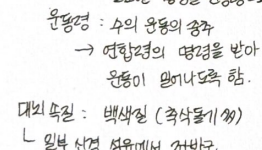 운동령 : 수의 운동의 중추
→ 연합령의 명령을 받아
운동이 일어나도록 함.
대뇌 속질 : 백색질 (축삭돌기 多)
└ 일부 신경 섬유에서